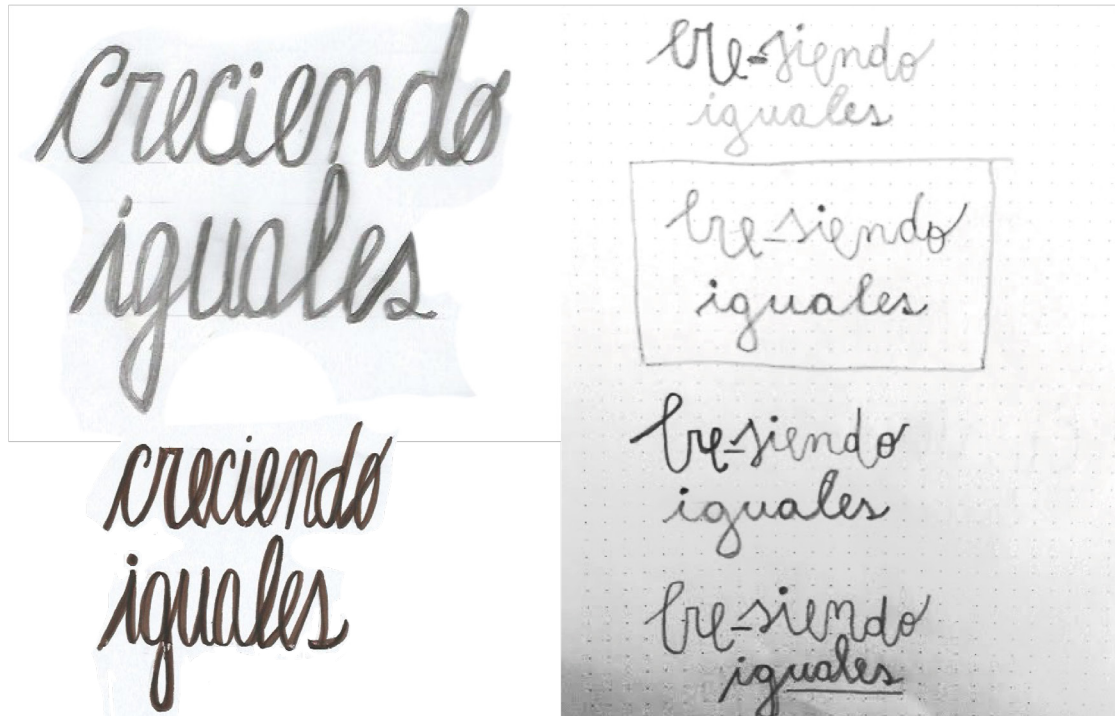 creciendo
iguales
creciendo
iguales
cre-siendo
iguales
cre-siendo
iguales
cre-siendo
iguales
cre-siendo
iguales